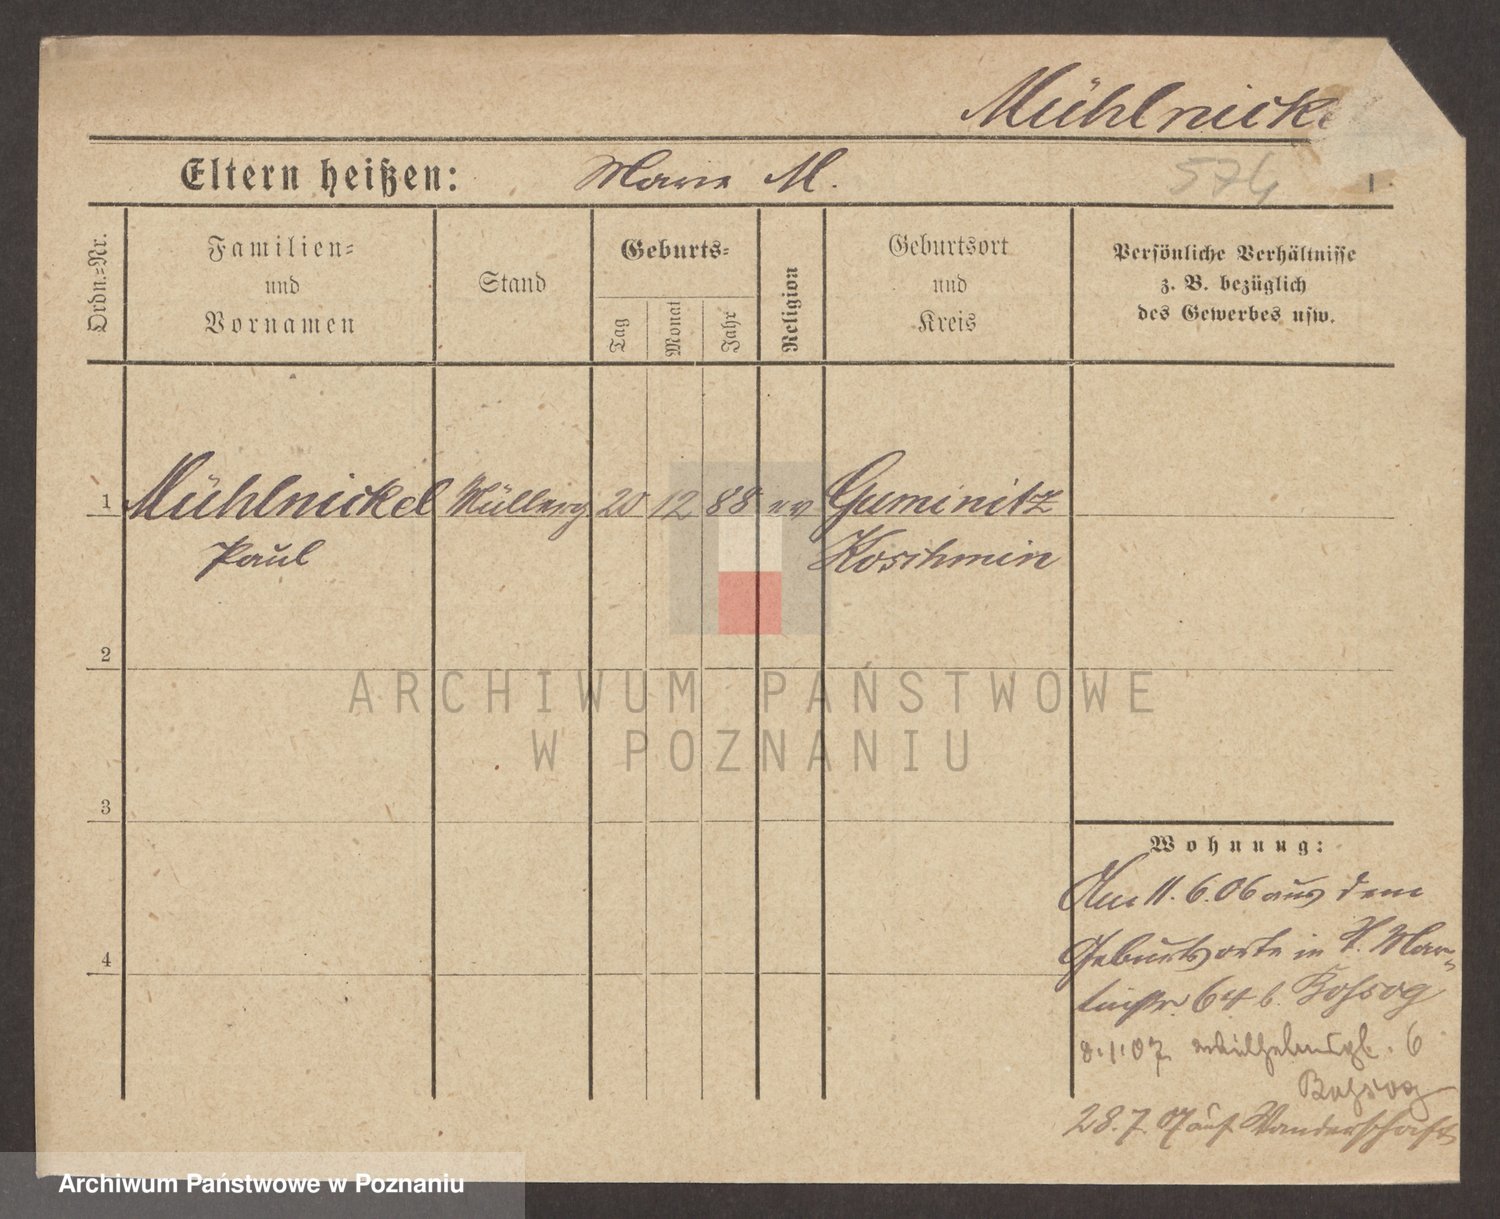 Mühlnickel
Eltern heißen: Marie M.
574
1.
Ordn.=Nr.
Familien=
und
Vornamen
Stand
Geburts=
Tag
Monat
Jahr
Religion
Geburtsort
und
Kreis
Persönliche Verhältnisse
z. B. bezüglich
des Gewerbes usw.
1 Mühlnickel 20 12 88 ev Guminitz
Paul Koschmin
2
3
4
Wohnung:
Am 11.6.06 aus dem
Geburtsorte in St. Mar=
tinstr. 64 b.
8.1.07 Wilhelmspl. 6
28.7.07 auf Wanderschaft
ARCHIWUM PAŃSTWOWE
W POZNANIU
Archiwum Państwowe w Poznaniu